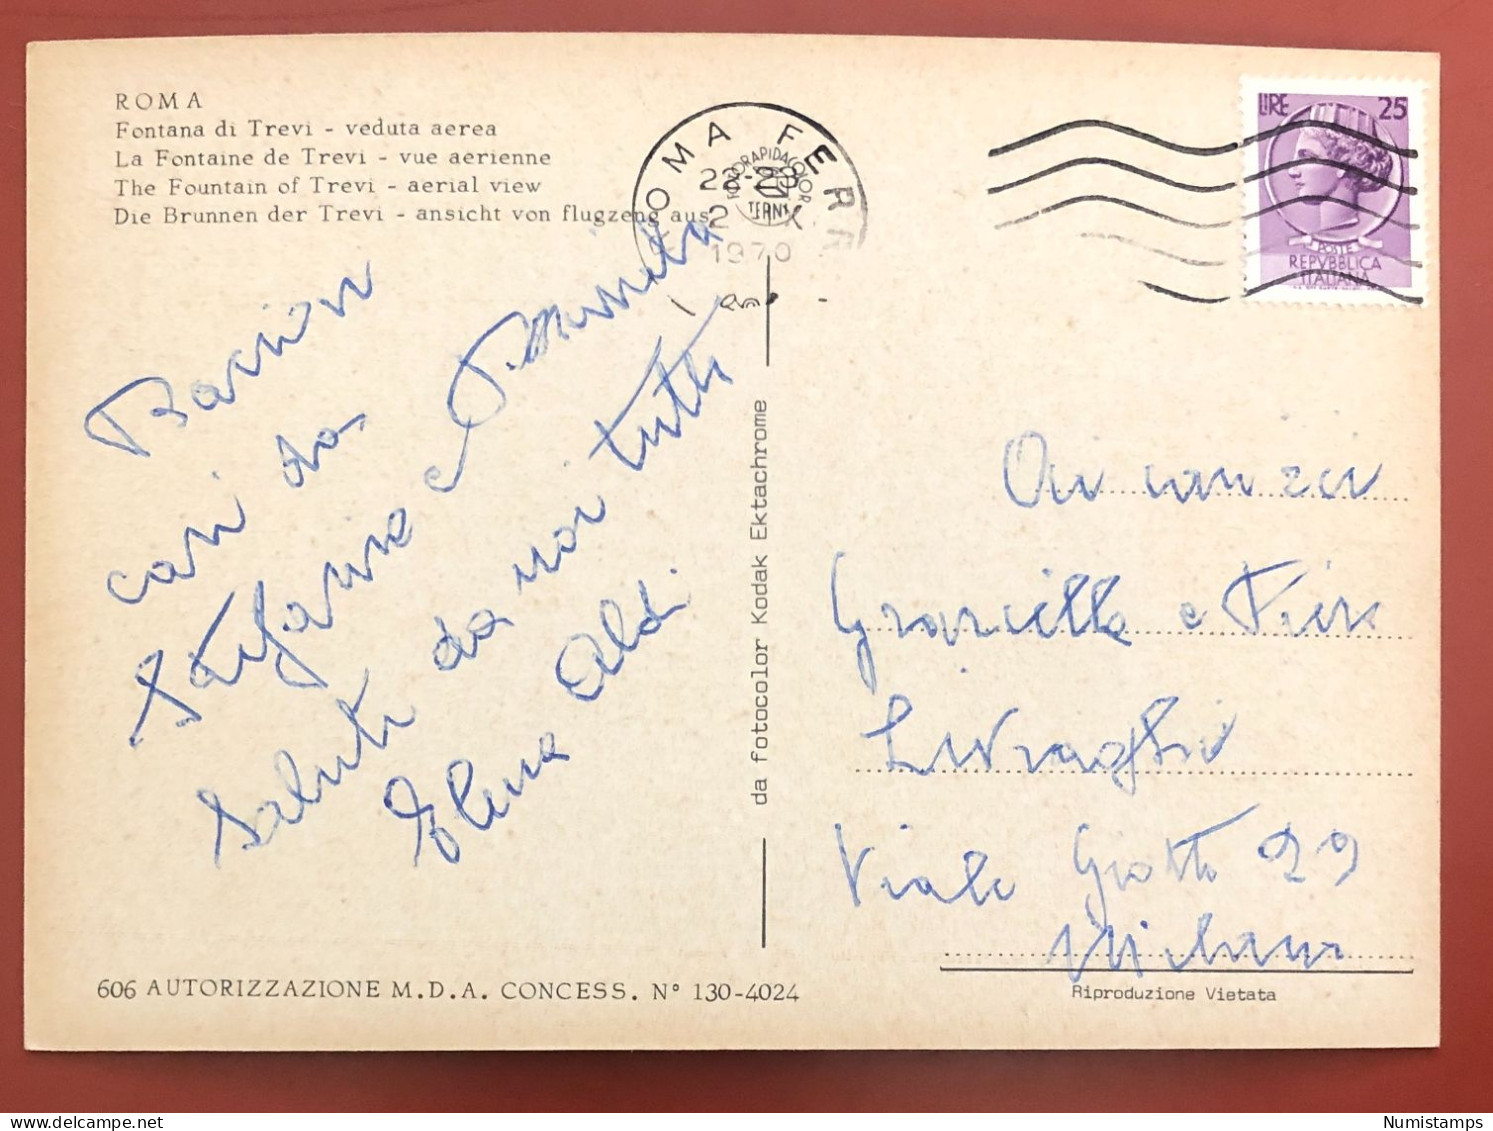 ROMA
Fontana di Trevi - veduta aerea
La Fontaine de Trevi - vue aerienne
The Fountain of Trevi - aerial view
Die Brunnen der Trevi - ansicht von flugzeng aus
ROMA FERR
22-23
2 X
1970
FOTORAPIDACOLOR
TERNI
LIRE 25
POSTE
REPVBBLICA
ITALIANA
Bacioni
cari da
Stefania e
Saluti da noi tutti
Elena Aldi
da fotocolor Kodak Ektachrome
Graziella e
Livraghi
Viale Giotti 29
Milano
606 AUTORIZZAZIONE M.D.A. CONCESS. N° 130-4024
Riproduzione Vietata
Numistamps